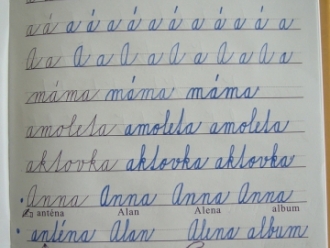 a á a á a á a á a á a á
máma máma máma
amoleta amoleta amoleta
aktovka aktovka aktovka
Anna Anna Anna Anna
anténa Alan Alena album
anténa Alan Alena album